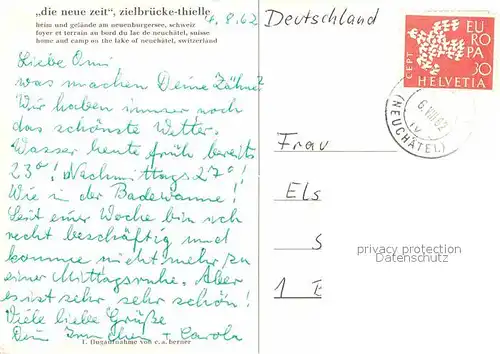 „die neue zeit", zielbrücke-thielle
heim und gelände am neuenburgersee, schweiz
foyer et terrain au bord du lac de neuchâtel, suisse
home and camp on the lake of neuchâtel, switzerland
4.8.62
Liebe Omi
was machen Deine Zähne?
Wir haben immer noch
das schönste Wetter.
Wasser heute früh bereits
23°! Nachmittags 27°!
Wie in der Badewanne!
Seit einer Woche bin ich
recht beschäftig und
komme nicht mehr zu
einer Mittagsruhe. Aber
es ist sehr sehr schön!
Viele liebe Grüße
Dein + Carola
1. flugaufnahme von c. a. berner
Deutschland
CEPT
EUROPA
30
HELVETIA
(NEUCHÂTEL)
62
Frau
Els
S
1 E
privacy protection
Datenschutz